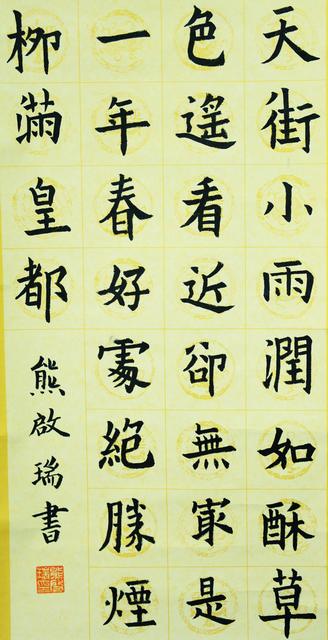 天街小雨潤如酥草
色遥看近卻無㝡是
一年春好處絕勝煙
柳滿皇都
熊啟瑞書